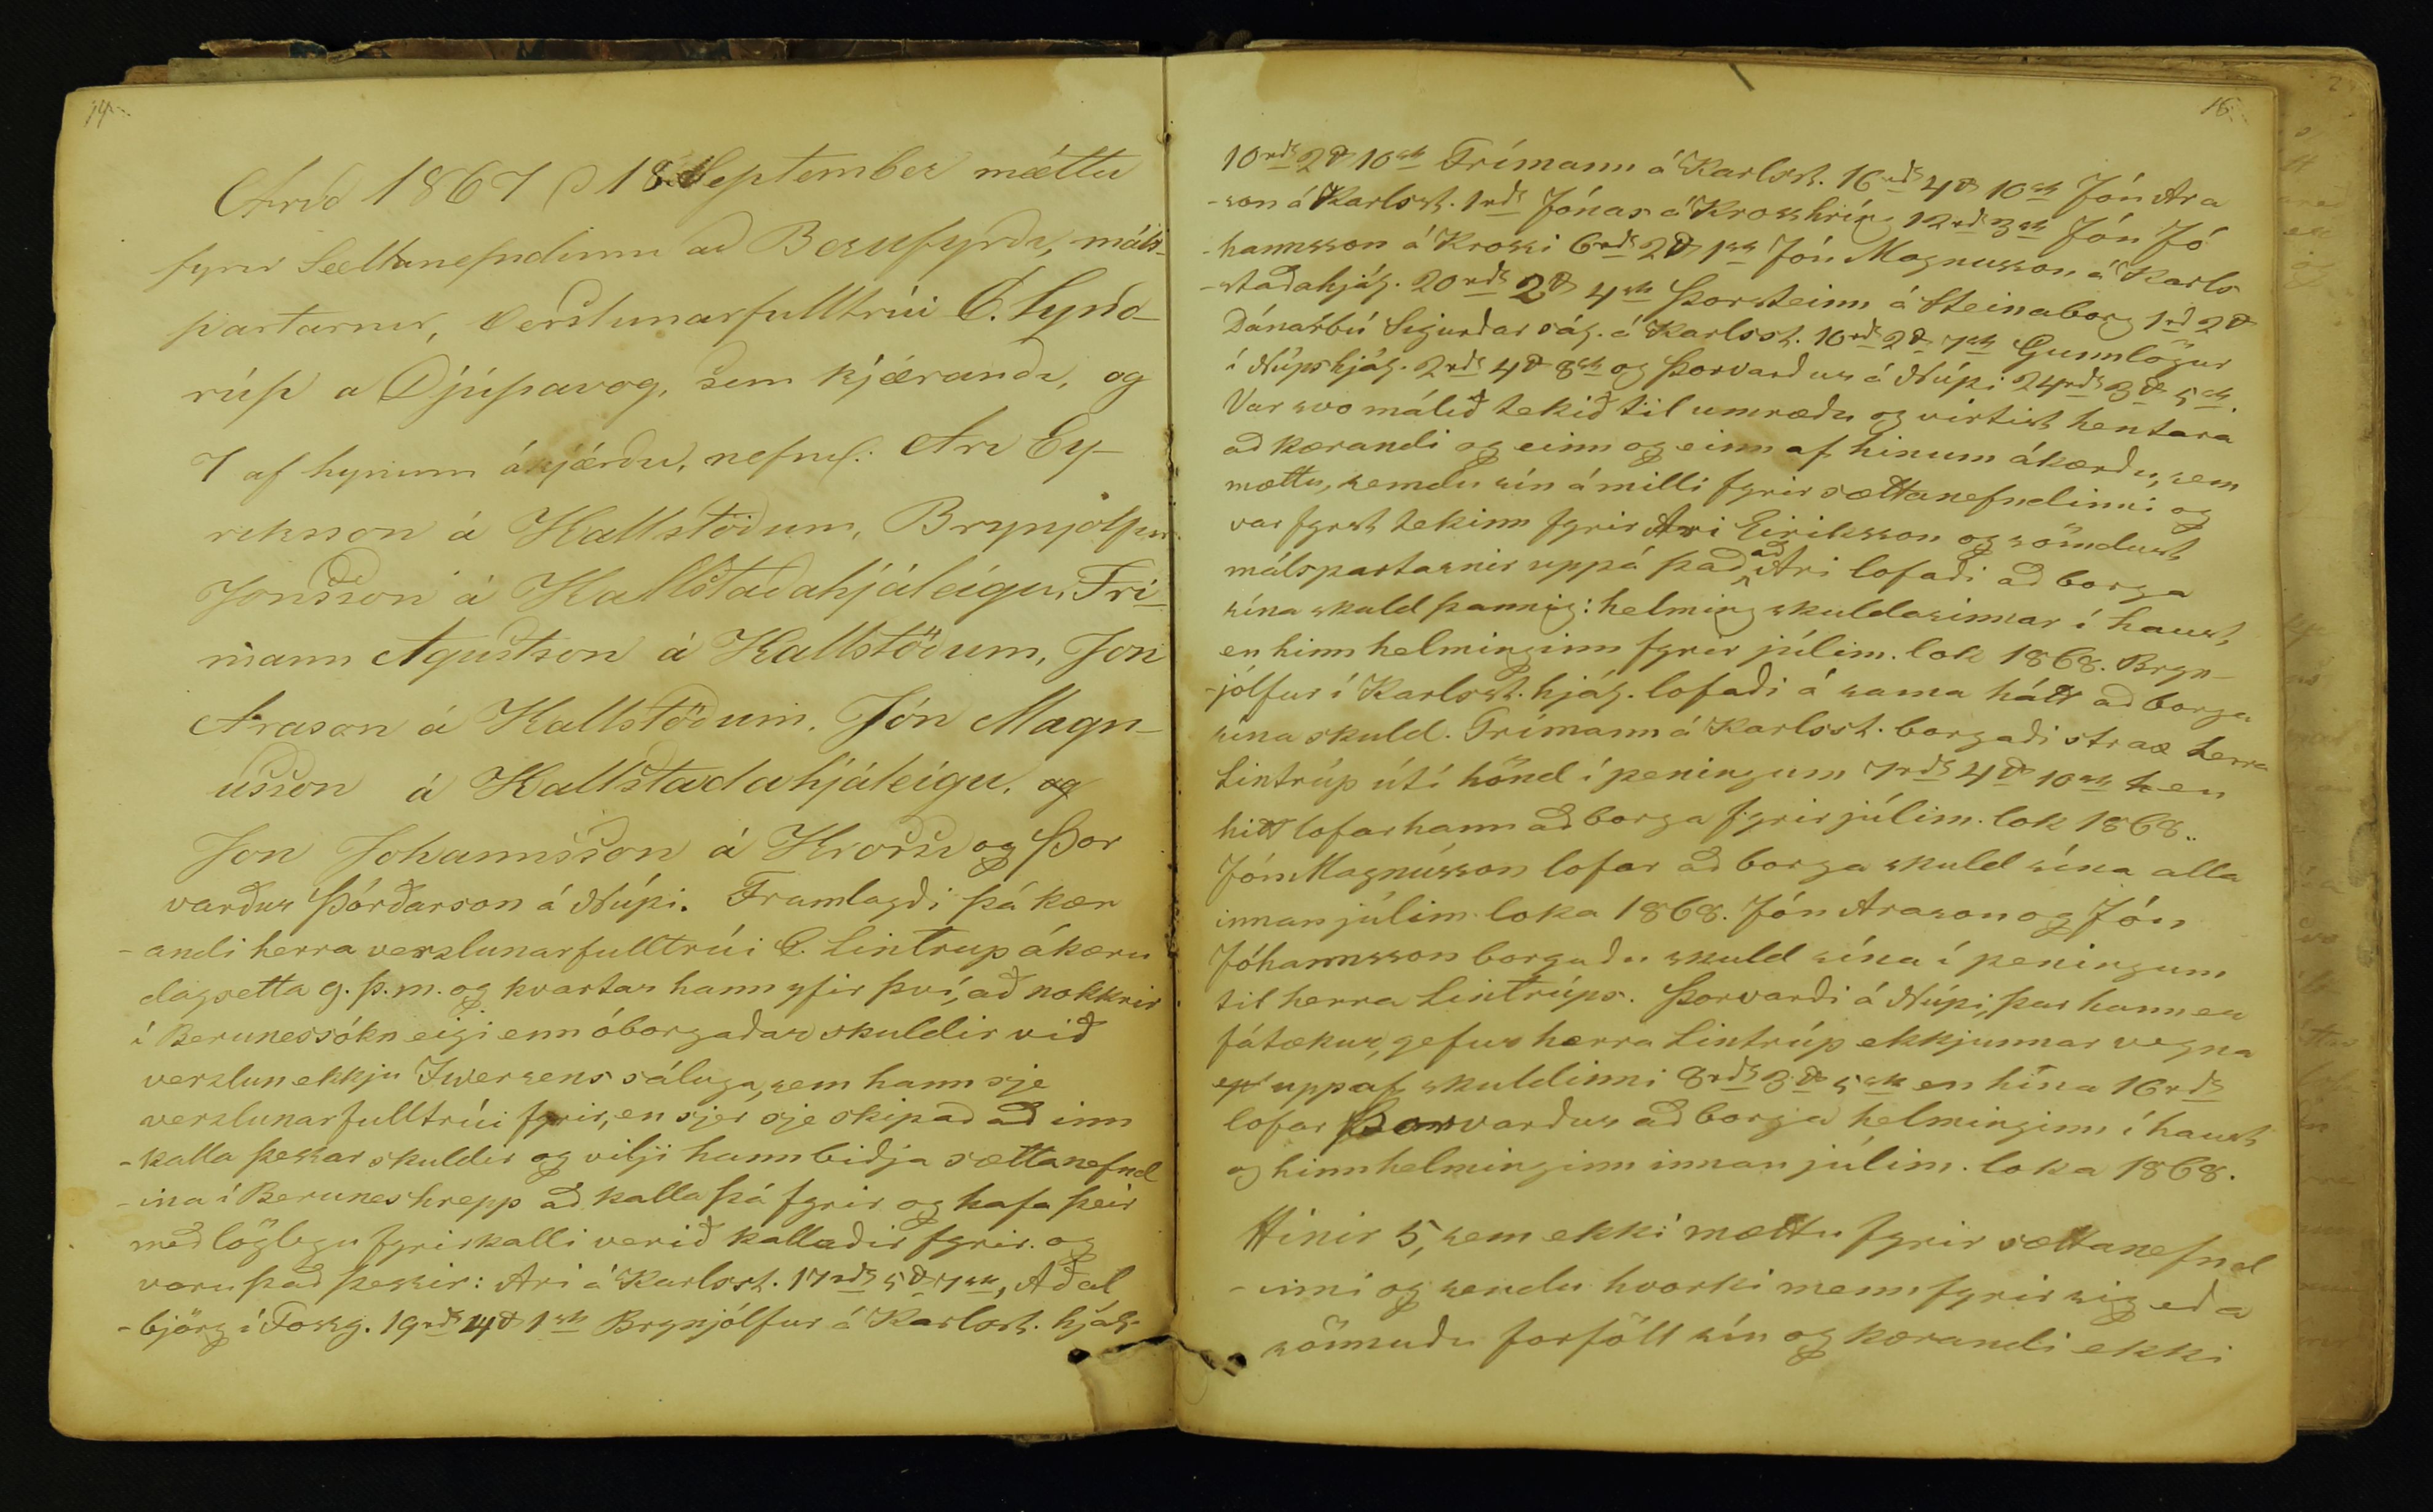 14
Arið 1867 d 18 September mættu
fyrir Sættanefndinni að Berufyrði, máls-
partarnir, Verslunarfulltrúi C. Lynd-
rúp a Djúpavog, sem kjærandi, og
7 af hynum ákjærðu, nefnil: Ari Ey-
rikson á Kallstöðum, Brynjolfur
Jonsson á Kallstaðahjáleigu, Frí-
mann Agustson á Kallstöðum, Jon
Arason á Kallstöðum, Jón Magn-
usson á Kallstadahjáleigu, og
Jon Johannsson á Krossi og Þor
varður Þórðarson á Núpi. Framlagði þá kær
-andi herra verzlunarfulltrúi C. Lintrup ákæru
dagsetta g. þ. m. og kvartar hann yfir því, að nokkrir
í Berunessókn eigi enn óborgaðar skuldir við
verzlun ekkju Iwersens sáluga, sem hann sje
verzlunarfulltrúi fyrir, en sjer sje skipað að inn
-kalla þessar skuldir og vilji hann biðja sættanefnd
-ina í Beruneshrepp að kalla þá fyrir og hafa þeir
með löglegu fyrirkalli verið kallaðir fyrir og
voru það þessir: Ari á Karlsst. 17rds 5 # 7sk, Aðal
-björg í Fossg. 19rds 4 # 1sk Brynjólfur á Karlsst. hjál.
16
10rds 2 # 10sk Frímann á Karlsst. 16rds 4 # 10sk Jón Ara
-son á Karlsst. 1rds Jónas á Krosshrúg 12rds 3sk Jón Jó
-hannsson á Krossi 6rds 2 # 1sk Jón Magnusson á Karls
-staðahjág. 20rds 2 # 4sk Þorsteinn á Steinaborg 1rd 2 #
Dánarbú Sigurðar ság. á Karlsst. 10rds 2 # 7sk Gunnlögur
í Núpshjág. 2rds 4 # 8sk og Þorvarður á Núpi 24rds 3 # 5sk.
Var svo málið tekið til umræðu og virtist hentara
að kærandi og einn og einn af hinum ákærðu, sem
mættu, semdu sín á milli fyrir sættanefndinni og
var fyrst tekinn fyrir Ari Eiriksson og sömdust
málspartarnir uppá það, að Ari lofaði að borga
sína skuld þannig: helming skuldarinnar í haust,
en hinn helminginn fyrir júlím. lok 1868. Bryn-
-jólfur í Karlsst. hjág. lofaði á sama hátt að borga
sína skuld. Frímann á Karlsst. borgaði strax herra
Lintrúp útí hönd í peningum 7rds 4 # 10sk en
hitt lofar hann að borga fyrir júlím. lok 1868.
Jón Magnússon lofar að borga skuld sína alla
innan júlím. loka 1868. Jón Arason og Jón
Jóhannsson borguðu skuld sína í peningum
til herra Lintrúps. Þorvarði á Núpi, þar hann er
fátækur, gefur herra Lintrúp ekkjunnar vegna
upp af skuldinni 8rds 3 # 5sk en hína 16rds
lofar Þorvarður að borga helminginn í haust
og hinn helminginn innan júlím. loka 1868.
Hinir 5, sem ekki mættu fyrir sættanefnd
-inni og sendu hvorki menn fyrir sig eða
sönnuðu forföll sín og kærandi ekki